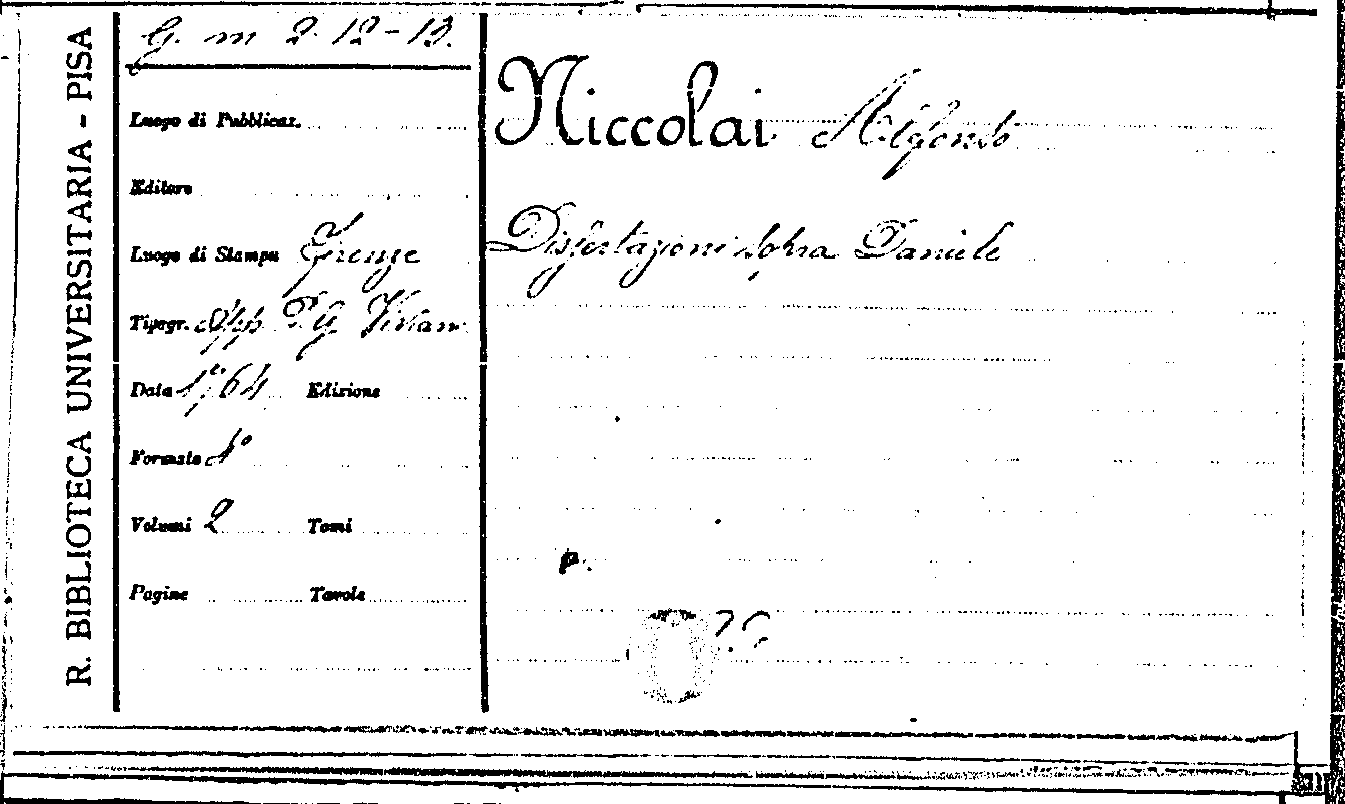 R. BIBLIOTECA UNIVERSITARIA - PISA
G. m 2. 12-13.
Luogo di Pubblicaz.
Editore
Luogo di Stampa Firenze
Tipogr. app. P. G. Viviani
Data 1764 Edizione
Formato 4°
Volumi 2 Tomi
Pagine Tavole
Niccolai Alfonso
Dissertazioni sopra Daniele